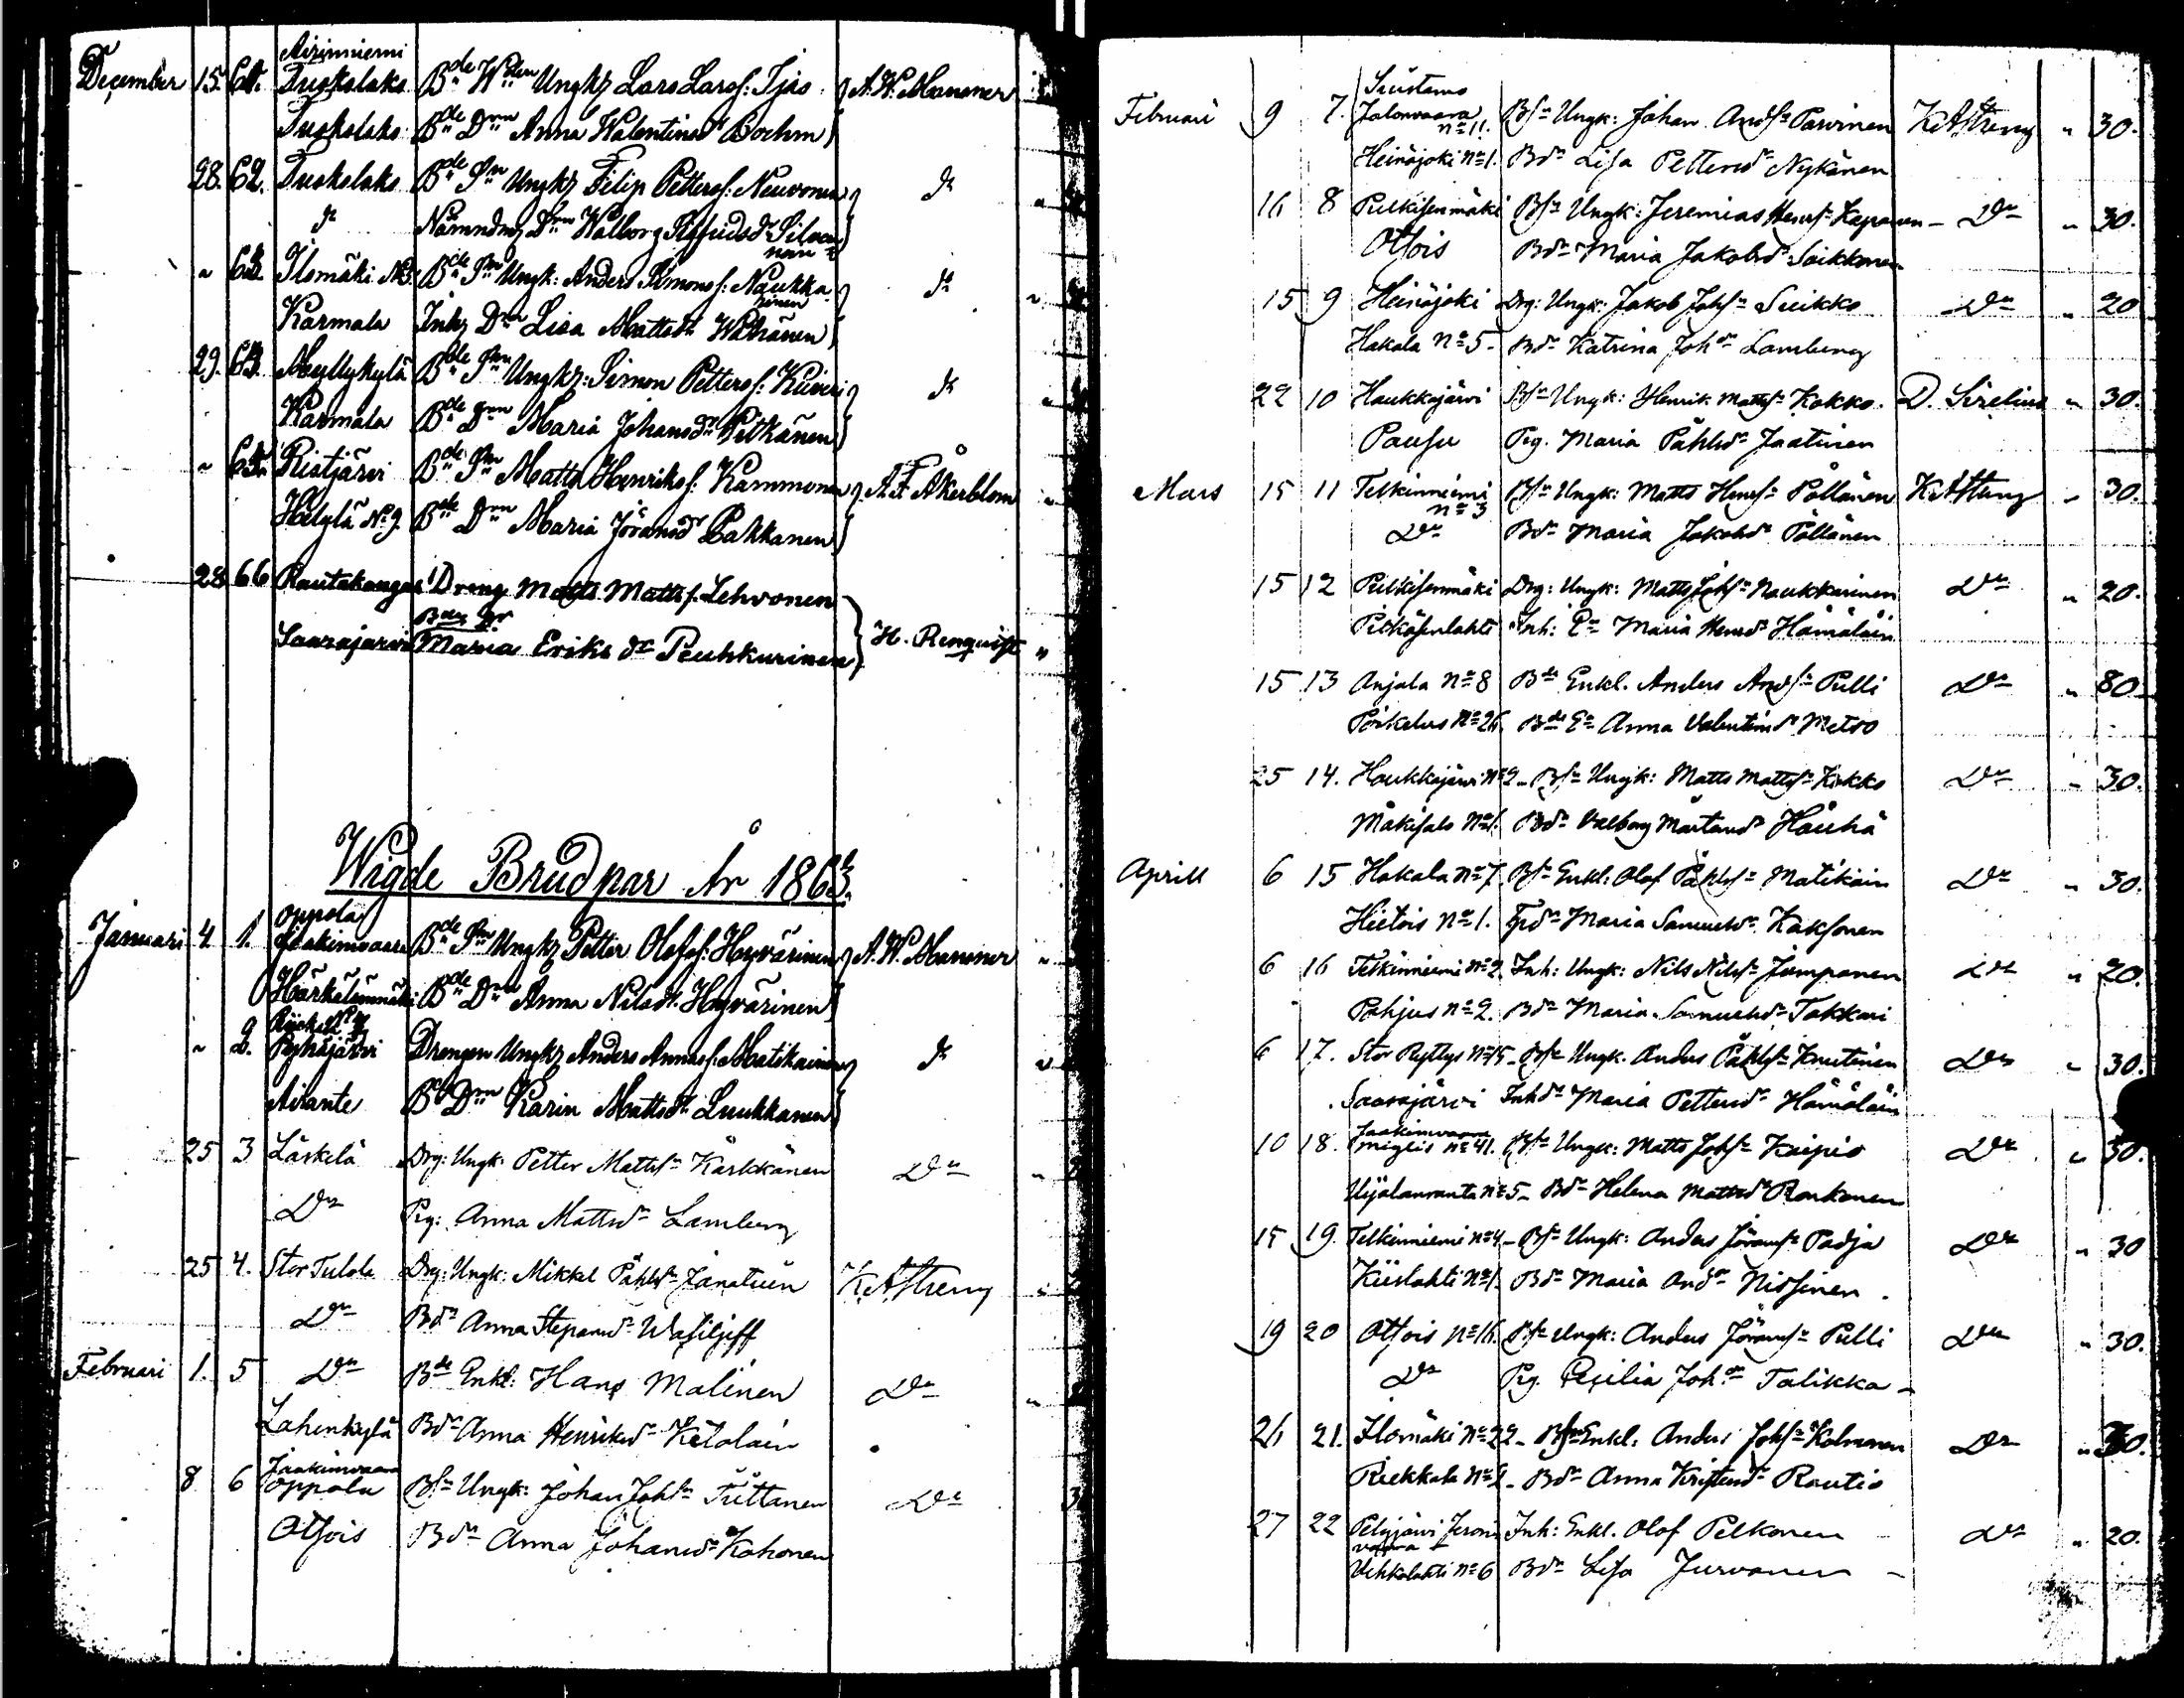 Airinniemi
December 15. 61. Tuokslaks Bde Wden Ungkz Lars Larsf. Ijäs A. W. Manoner
Tuokslaks Bde Drn Anna Walentinsdr Boehm
28. 62. Tuokslaks Bde Sn Ungkz Filip Pettersf. Neuvonen do
do Nämndmz Drn Walborg Sigfridsdr Silvan
nen
" 63. Ilomäki No3. Bde Sn Ungk: Anders Simonsf. Naukka do
rinen
Karmala Inhz Drn Lisa Mattsdr
29. 64. Myllykylä Bde Sn Ungkz: Simon Pettersf. Kiiveri do
Karmala Bde Drn Maria Johansdr Pitkänen
" 65. Ristjärvi Bde Sn Matts Henriksf. Kammonen A. F. Åkerblom
Helylä No 9. Bde Drn Maria Jöransdr Pakkanen
28 66 Rautakangas Dreng Matts Mattsf. Lehvonen
Saarajarvi Maria Eriks dr Peuhkurinen H. Renquist "
Wigde Brudpar År 1863.
Oppola
Januari 4. 1. Jaakimvaara Bde Sn Ungkz Petter Olofsf. Hyvärinen A. W. Manoner
Härkälinmäki Bde Drn Anna Nilsdr. Hyvärinen
" 2. Pyhäjärvi Drengen Ungkz Anders Annasf. Matikainen do
Airante Bd Drn Karin Mattsdr Luukkanen
25 3 Läskelä Drg: Ungk: Petter Mattsn Kärkkänen Do
Do Pig: Anna Mattsdr Lamberg
25 4. Stor Tulola Drg: Ungk: Mikkel Påhlsn Janatuin K. A. Streng
Do Bdr Anna Stepansdr Wasiljeff
Februari 1. 5 Do Bde Enkl: Hans Malinen Do
Lahenkylä Bdr Anna Henriksdr Ketolain
Jaakimvaara
8 6 Oppola Bsn Ungk: Johan Johsn Tiittanen Do 3
Otsois Bdr Anna Johansdr Kohonen
Suistamo
Februari 9 7. Jalonvaara Bsn Ungk: Johan Andsn Parvinen K. A. Streng " 30.
no 11.
Heinäjoki no 1. Bdr Lisa Pettersdr Nykänen
16 8 Putkisenmäki Bsn Ungk: Jeremias Henrsn Kaponen - Do " 30.
Otsois Bdr Maria Jakobsdr Saikkonen
15 9 Heinäjoki Drg: Ungk: Jakob Johsn Suikko Do " 20
Hakala No 5 - Bdr Katrina Johdr Lamberg
22 10 Haukkajärvi Bsn Ungk: Henrik Mattsn Kokko. D. Sirelius " 30.
Pausu Pig. Maria Påhlsdr Jaatinen
Mars 15 11 Telkinniemi Bsn Ungk: Matts Henrsn Pöllänen K. A. Streng " 30.
no 3
Do Bdr Maria Jakobsdr Pöllänen
15 12 Putkisenmäki Drg: Ungk: Matts Johsn Naukkarinen Do " 20.
Pitkäsenlahti Inh: Ea Maria Henrsdr Hämäläin
15 13 Anjala No 8 Bde Enkl. Anders Andsn Pulli Do " 80.
Pörkelus No 26. Bde Ea Anna Valentinsdr Metso
25 14. Haukkajärvi No 2 - Bsn Ungk: Matts Mattsn Kokko Do " 30.
Mäkisalo No 1. Bdr Valborg Mårtensdr Häuhä
Aprill 6 15 Hakala No 7. Bsn Enkl: Olof Påhlsn Matikain Do " 30.
Hietois No 1. Maria Samuelsdr Kaksonen
6 16 Telkinniemi No 2. Inh: Ungk: Nils Nilsn Jumpponen Do " 20.
Pohjus no 2. Bdr Maria Samuelsdr Takkari
6 17. Stor Ryttys No 15 - Bsn Ungk. Anders Påhlsn Knutinen Do " 30.
Saarajärvi Inhdr Maria Pettersdr Hämäläin
Jaakimvaara
10 18. Miglis no 41. Bsn Ungk: Matts Johsn Kaipio Do " 30.
Uijalanranta no 5 - Bdr Helena Mattsdr Ronkonen
15 19. Telkinniemi no 4 - Bsn Ungk: Anders Jöransn Padja Do " 30
Kiislahti No 1. Bdr Maria Anddr Nissinen.
19 20 Otsois No 16. Bsn Ungk: Anders Jöransn Pulli Do " 30.
Do Pig. Cecilia Johdr Talikka -
26 21. Ilomäki No 22 - Bsn Enkl: Anders Johsn Kolmonen Do " 30.
Riekkala No 2 - Bdr Anna Kristersdr Rautio
27 22 Pelgjärvi Jeroin Inh: Enkl. Olof Pelkonen Do " 20.
vaara
Vehkalahti no 6 Bdr Lisa Jurvanen -